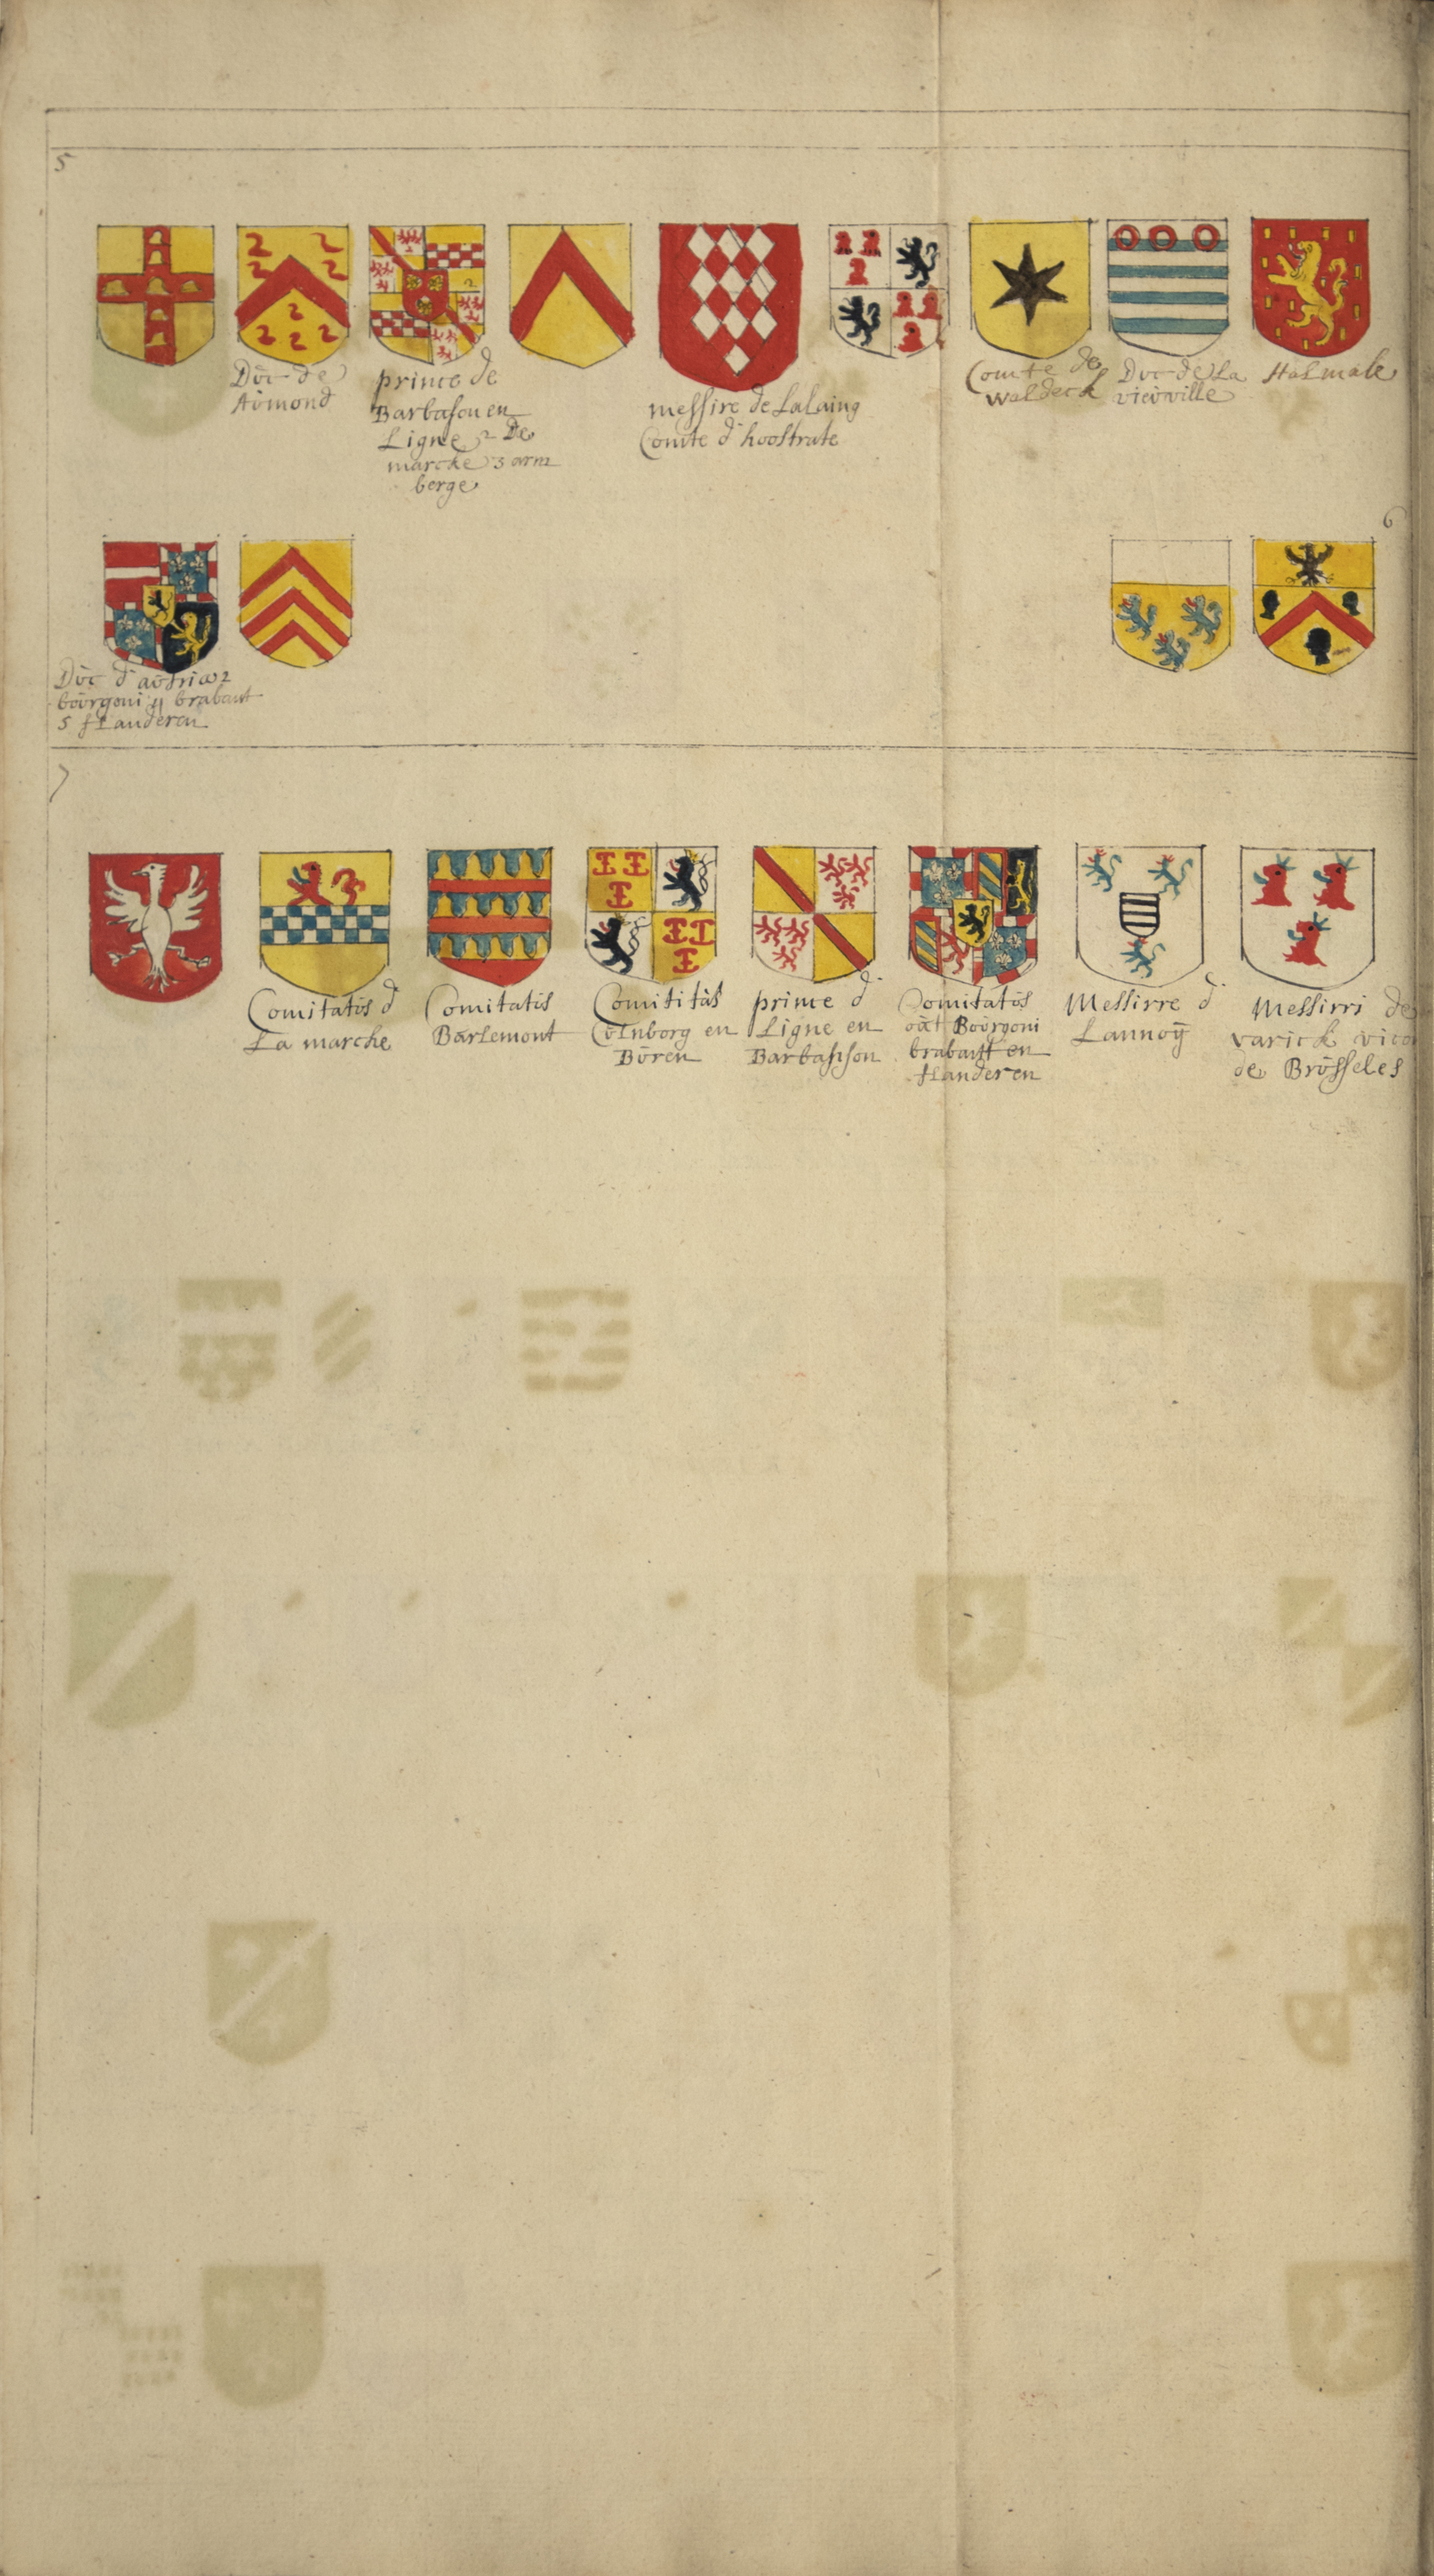 5
Dúc de
Aúmond
prince de
Barbason en
Ligne 2 De
marcke 3 arm
berge
messire de Lalaing
Comte d'hoostrate
Comte de
waldeck
Dúc de La
vieúville
Halmale
6
Dúc d'aústria 2
boúrgoni 4 brabant
5 flanderen
7
Comitatús d'
La marche
Comitatis
Barlemont
Comititàs
en
Búren
prince d'
Ligne en
Barbasson
Comitatús
Boúrgoni
brabant en
flanderen
Messirre d'
Lannoÿ
Messirri de
varick vico
de Brússeles